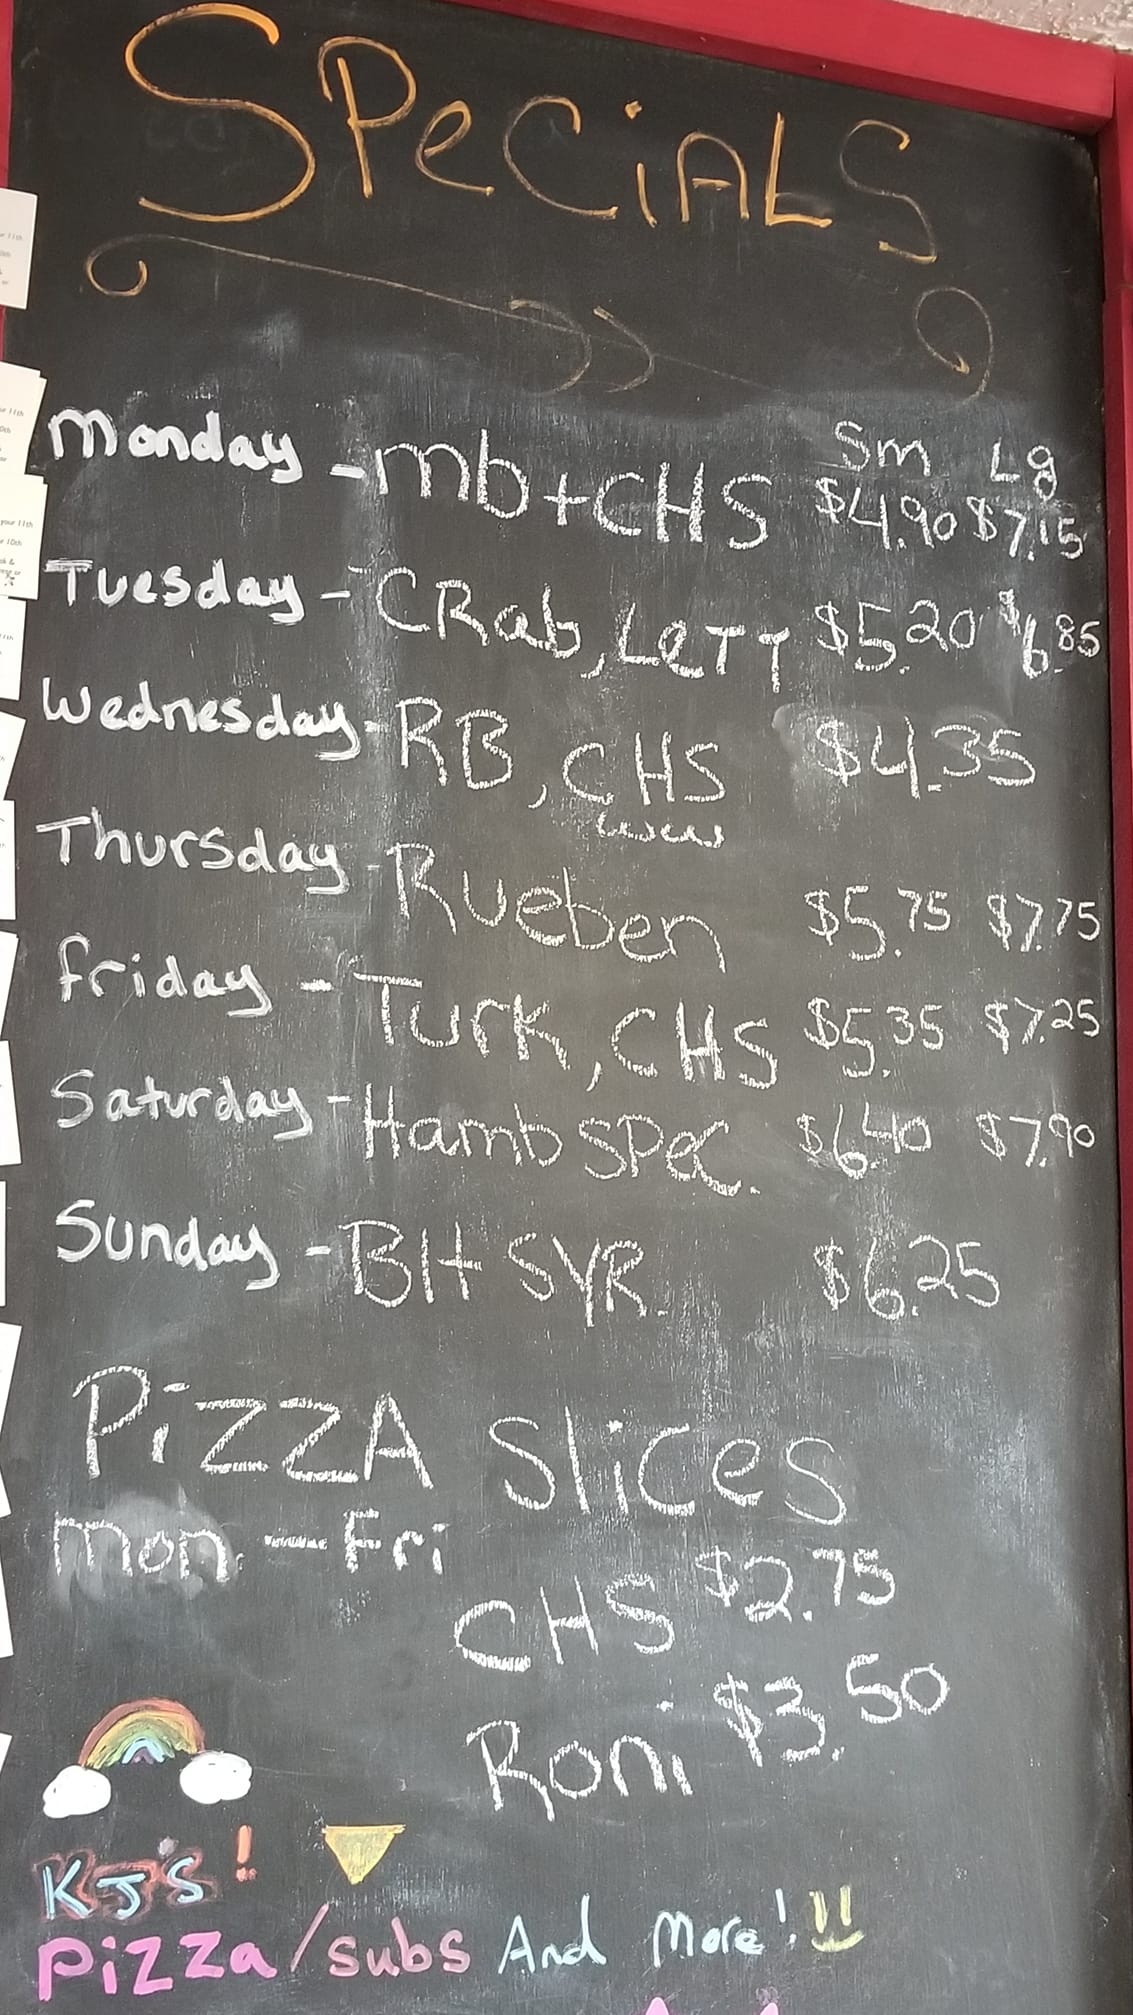 SPeCiALS
Sm Lg
Monday - mb+CHS $4.90 $7.15
Tuesday - CRab, LeTT $5.20 $6.85
Wednesday - RB, CHS $4.35
Thursday - Rueben $5.75 $7.75
Friday - Turk, CHS $5.35 $7.25
Saturday - Hamb SPec. $6.40 $7.90
Sunday - BH SYR. $6.25
PiZZA Slices
Mon - Fri
CHS $2.75
Roni $3.50
KJ'S!
Pizza/subs And More!